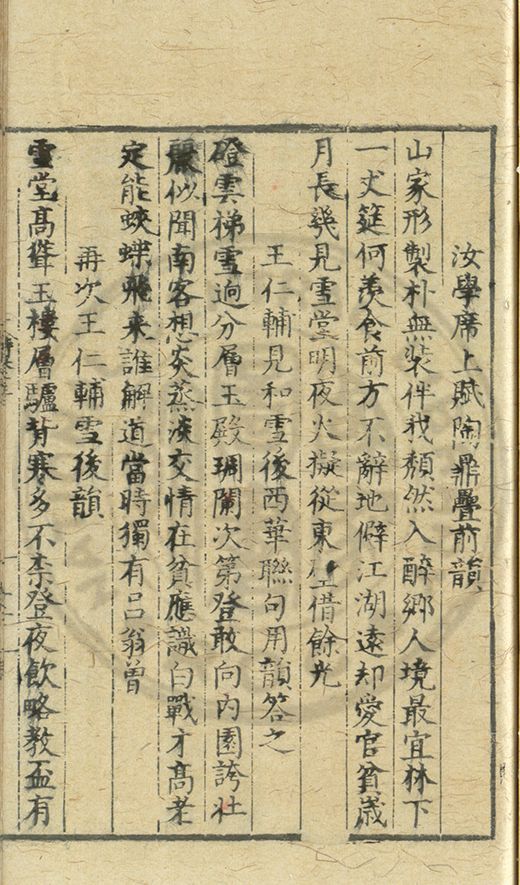 汝學席上賦陶鼎疊前韻
山家形製朴無裝伴我頹然入醉鄉人境最宜林下
一丈筵何羨食前方不辭地僻江湖遠却愛官貧歲
月長幾見雪堂明夜火擬從東壁借餘光
王仁輔見和雪後西華聯句用韻答之
磴雲梯雪逈分層玉殿琱闌次第登敢向內園誇壯
麗似聞南客想炎蒸淡交情在貧應識白戰才高老
定能蛺蝶飛來誰解道當時獨有呂翁曾
再次王仁輔雪後韻
雪堂高聳玉樓層驢背寒多不柰登夜飲略教盃有